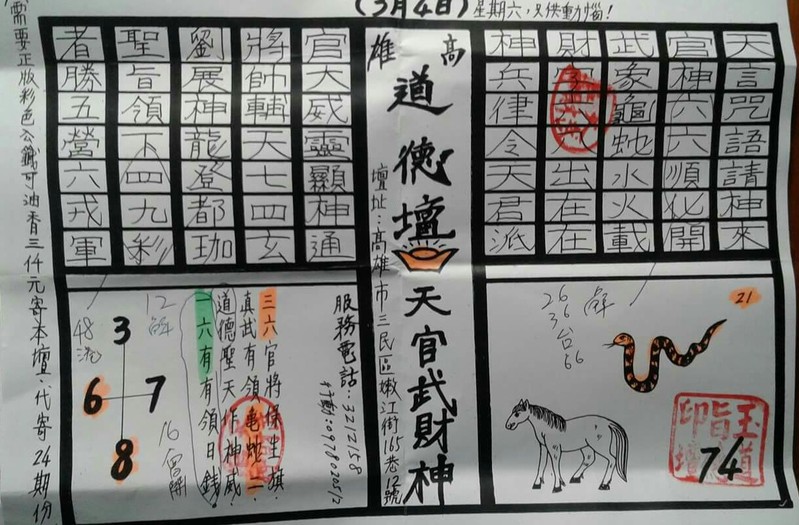 (3月4日) 星期六，只供動腦！
天言咒語請神來
官神六六順化開
武象龜蛇水火載
財
出在在
神兵律令天君派
高雄
道德壇 天官武財神
壇址：高雄市三民區嫩江街165巷12號
官大威靈顯神通
將帥輔天七四玄
劉展神龍登都珈
聖旨領下四九彩
者勝五營六戎軍
21
26
36 台
66
解
74
服務電話：3212158
三六官將保生旗
真武有領龜蛇二
道德聖天作神威
一六有有領日錢
12
解
48
港
3
6 7
8
16
需要正版彩色公籤可油香三仟元寄本壇，代寄24期份